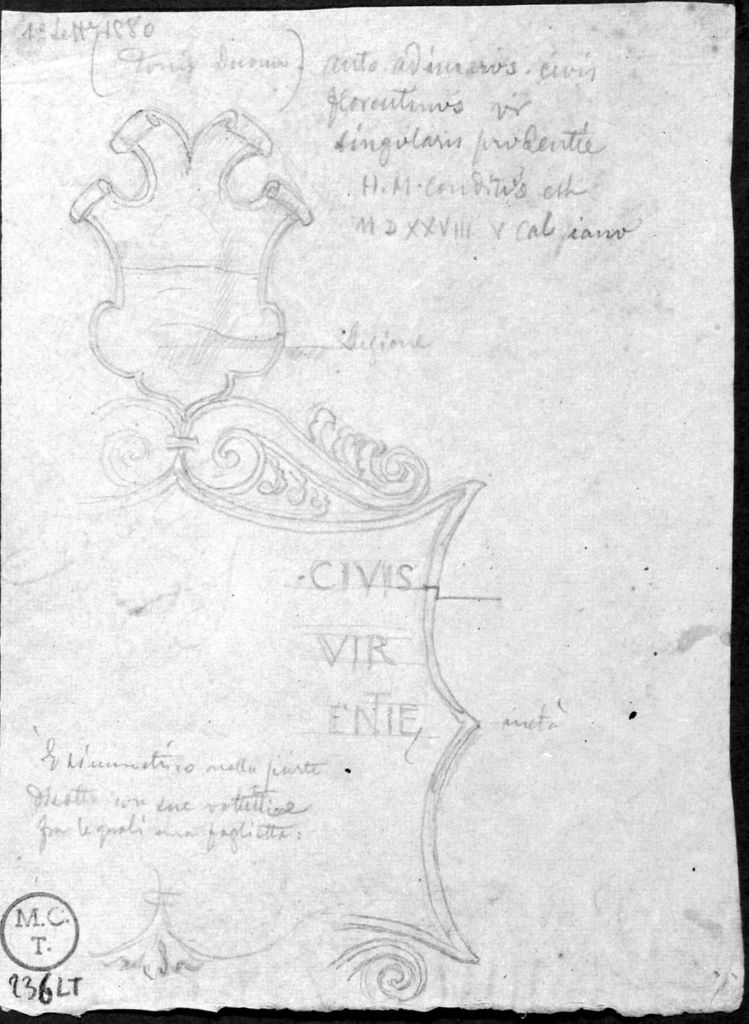 1º Sett 1880
(Torri Duomo)
anto adimarus. civis
florentinus vir
singularis prudentie
H. M. conditus est
MDXXVIII V cal janu
Sezione
·CIVIS
VIR
ENTIE
metà
È simmetrico nella parte
disotto con sue volutine
fra le quali una foglietta:
M.C.
T.
236 LT